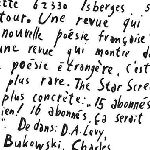 ette 62330 Isbergs. s
tour. Une revue qui
nouvelle poésie française
une revue qui montre d
poésie étrangère, c'est
plus rare. The Star Scre
plus concrète. 15 abonnés
ien! 16 abonnés, ça serait
Dedans: D.A. Levy,
Bukowski, Charles